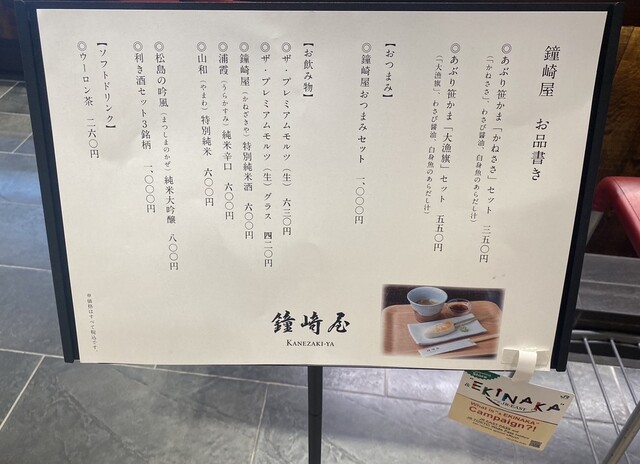 鐘崎屋 お品書き
◎あぶり笹かま「かねささ」セット 三五〇円
（「かねささ」、わさび醤油、白身魚のあらだし汁）
◎あぶり笹かま「大漁旗」セット 五五〇円
（「大漁旗」、わさび醤油、白身魚のあらだし汁）
【おつまみ】
◎鐘崎屋おつまみセット 一、〇〇〇円
【お飲み物】
◎ザ・プレミアムモルツ（生） 六三〇円
◎ザ・プレミアムモルツ（生）グラス 四二〇円
◎鐘崎屋（かねざきや）特別純米酒 六〇〇円
◎浦霞（うらかすみ）純米辛口 六〇〇円
◎山和（やまわ）特別純米 六〇〇円
◎松島の吟風（まつしまのかぜ）純米大吟醸 八〇〇円
◎利き酒セット3銘柄 一、〇〇〇円
【ソフトドリンク】
◎ウーロン茶 二六〇円
※価格はすべて税込です。
鐘崎屋
KANEZAKI-YA
EKINAKA
JR-EAST
What is "EKINAKA"
Campaign?!